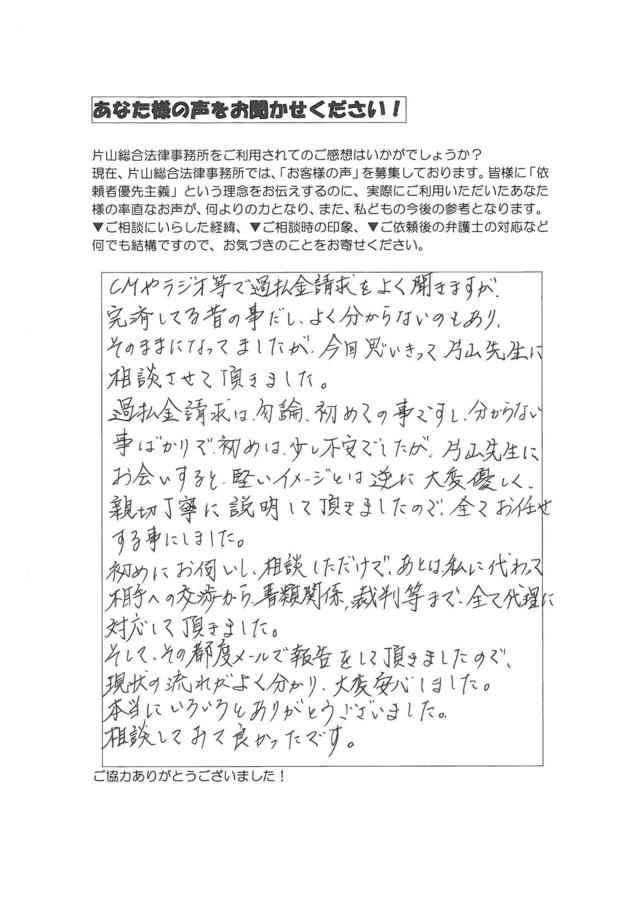 あなた様の声をお聞かせください！
片山総合法律事務所をご利用されてのご感想はいかがでしょうか？
現在、片山総合法律事務所では、「お客様の声」を募集しております。皆様に「依
頼者優先主義」という理念をお伝えするのに、実際にご利用いただいたあなた
様の率直なお声が、何よりの力となり、また、私どもの今後の参考となります。
▼ご相談にいらした経緯、▼ご相談時の印象、▼ご依頼後の弁護士の対応など
何でも結構ですので、お気づきのことをお寄せください。
CMやラジオ等で過払金請求をよく聞きますが、
完済してる昔の事だし、よく分からないのもあり、
そのままになってましたが、今回思いきって片山先生に
相談させて頂きました。
過払金請求は、勿論、初めての事ですし、分からない
事ばかりで、初めは、少し不安でしたが、片山先生に
お会いすると、堅いイメージとは逆に大変優しく、
親切丁寧に説明して頂きましたので、全てお任せ
する事にしました。
初めにお伺いし、相談しただけで、あとは、私に代わって
相手への交渉から、書類関係、裁判等まで、全て代理に
対応して頂きました。
そして、その都度メールで報告をして頂きましたので、
現状の流れがよく分かり、大変安心しました。
本当にいろいろとありがとうございました。
相談してみて良かったです。
ご協力ありがとうございました！